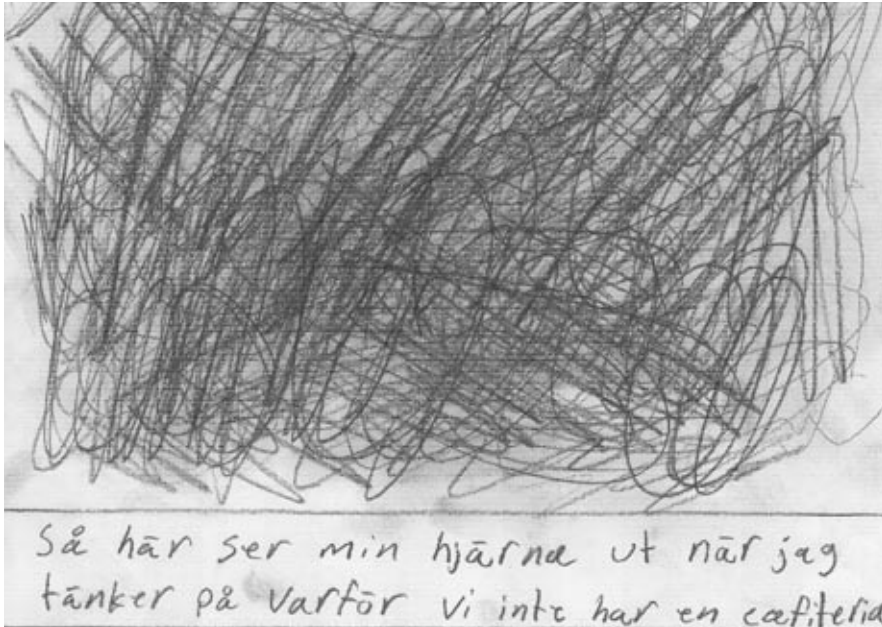 Så här ser min hjärna ut när jag
tänker på varför vi inte har en cafiteria